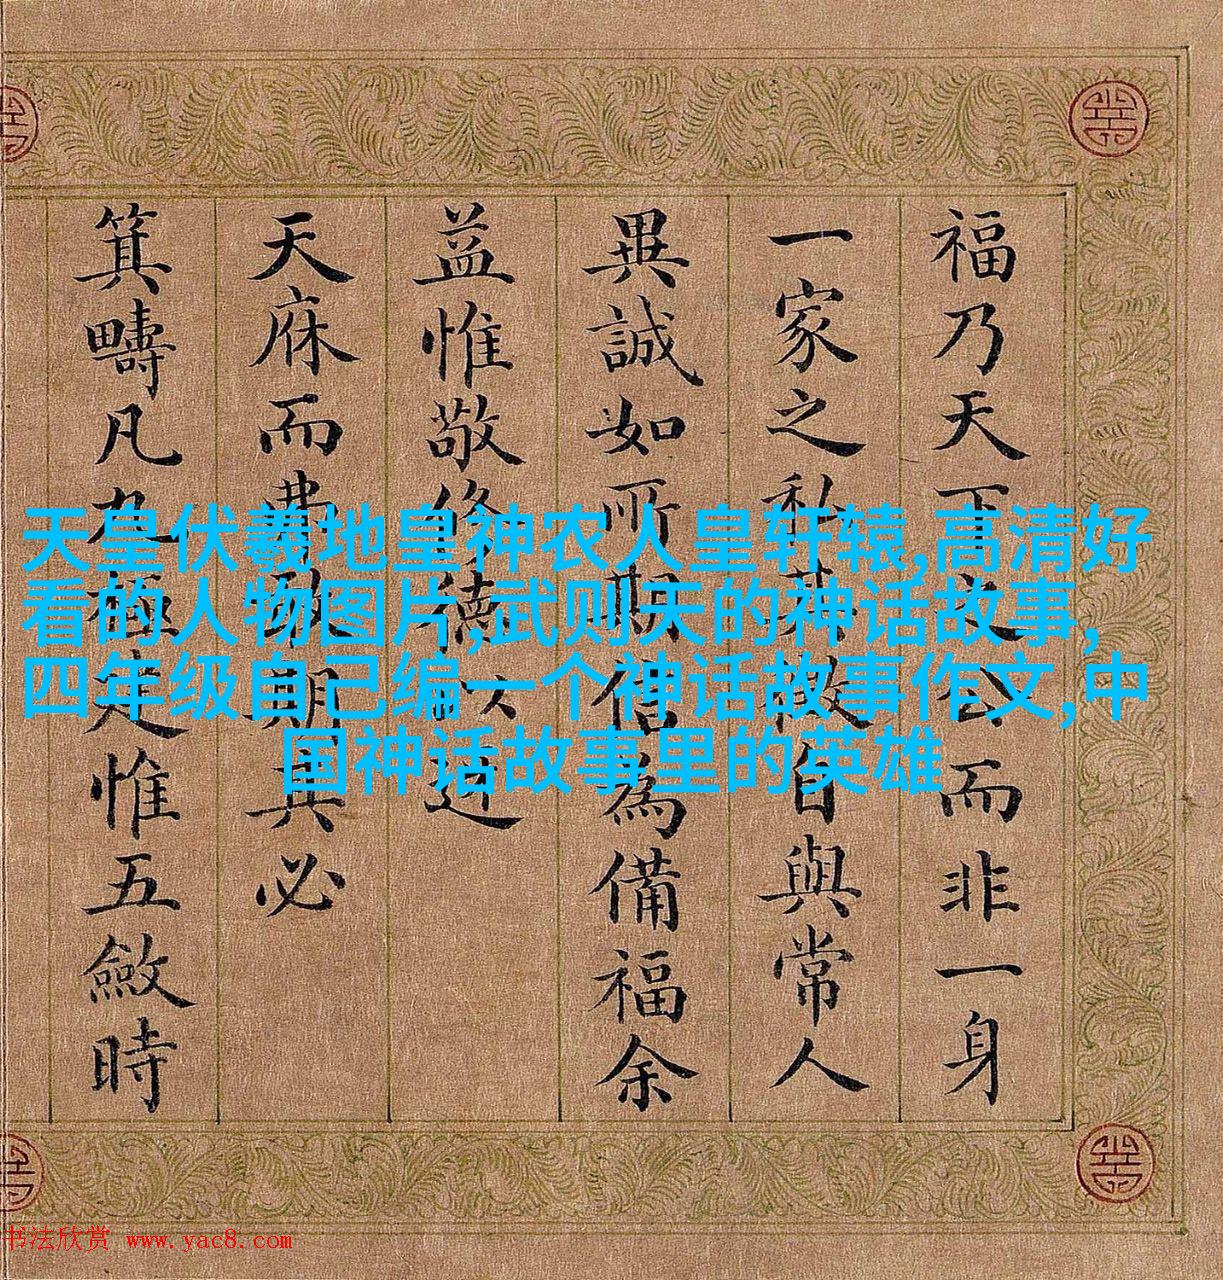 福乃天下之公而非一身
一家之私其自與常人
異誠如所期為備福余
益惟敬修德以迓
天庥而期其必
箕疇凡九極建惟五斂時
天皇伏羲地皇神农人皇轩辕,高清好
看的人物图片,武则天的神话故事,
四年级自己编一个神话故事作文,中
国神话故事里的英雄
书法欣赏 www.yac8.com